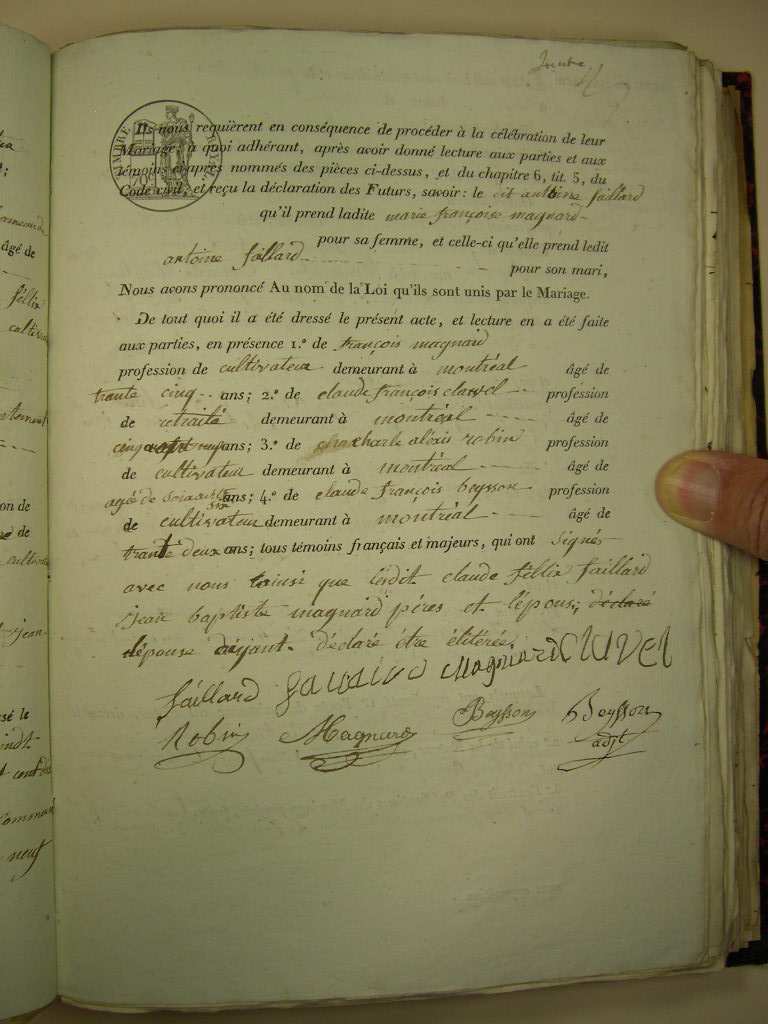 TIMBRE
Ils nous requièrent en conséquence de procéder à la célébration de leur
Mariage; à quoi adhérant, après avoir donné lecture aux parties et aux
témoins ci-après nommés des pièces ci-dessus, et du chapitre 6, tit. 5, du
Code civil, et reçu la déclaration des Futurs, savoir: le cit antoine faillard
qu'il prend ladite marie françoise magnard
pour sa femme, et celle-ci qu'elle prend ledit
antoine faillard pour son mari,
Nous avons prononcé Au nom de la Loi qu'ils sont unis par le Mariage.
De tout quoi il a été dressé le présent acte, et lecture en a été faite
aux parties, en présence 1.º de françois magnard
profession de cultivateur demeurant à montréal âgé de
trante cinq ans; 2.º de claude françois clavel profession
de retraité demeurant à montréal âgé de
cinq ans; 3.º de charle alexis robin profession
de cultivateur demeurant à montréal âgé de
agé de ans; 4.º de claude françois beysson profession
de cultivateur demeurant à montréal âgé de
trante deux ans; tous témoins français et majeurs, qui ont signés
avec nous que ledit claude félix faillard
jean baptiste magnard péres et l'épous; déclaré
l'épouse déclaré être élitérée.
faillard Magnard CLAVEL
Robin Magnard Beysson Beysson
adjt